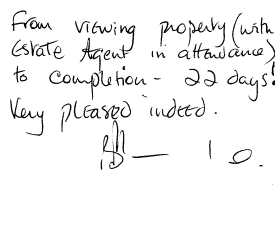 From viewing property (with
Estate Agent in attendance)
to completion - 22 days!
Very pleased indeed.